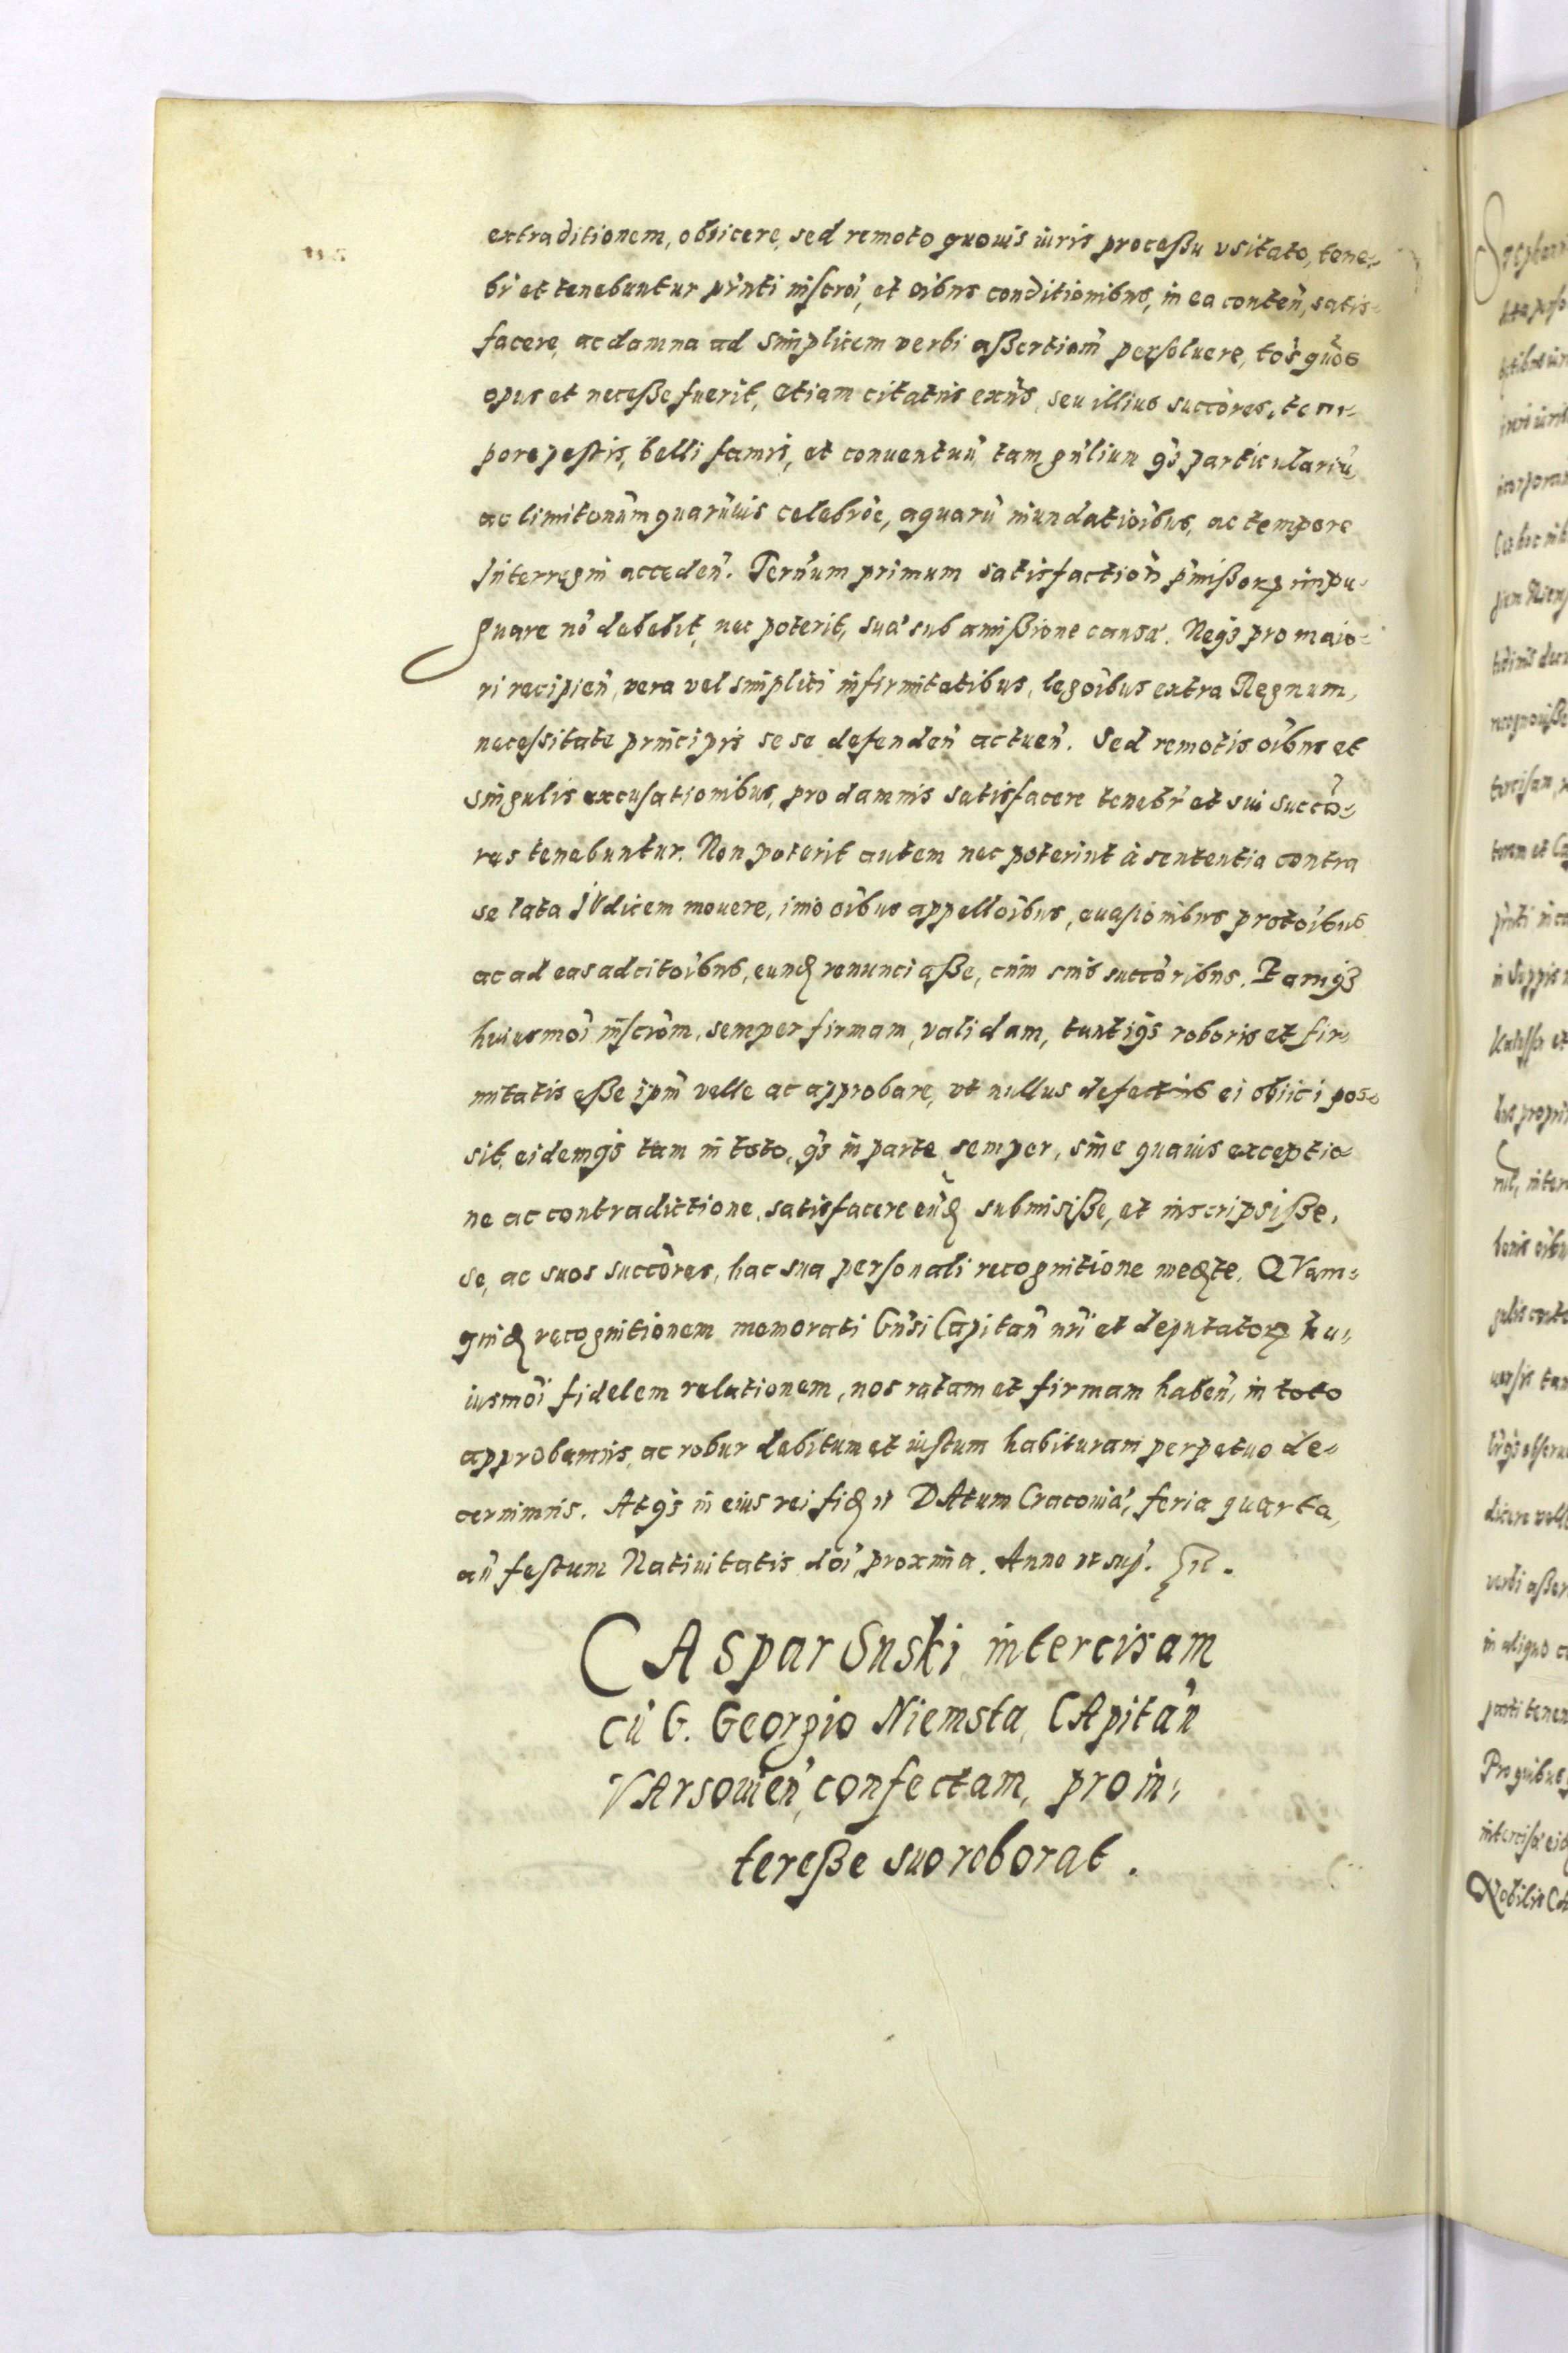 extraditionem, obiicere, sed remoto quouis iuris proceßu vsitato, tene-
br̃ et tenebuntur pr̃nti inscrõi, et oĩbus conditionibus, in ea conteñ, satis-
facere, ac damna ad simplicem verbi aßertiom̃ persoluere, tõs quõs
opus et neceße fuerit, etiam citatus exñs, seu illius succõres, tem-
pore pestis, belli famis, et conuentuũ tam gñlium qȝ particulariũ
ac limitonũm quarũuis celebrõe, aquarũ inundatioĩbus, ac tempore
Interregni accedeñ. Terñum primum satisfactioñ p̃mißorꝝ impu-
gnare nõ debebit, nec poterit, sua sub amißione causæ. Neqȝ pro maio-
ri recipieñ, vera vel simplici infirmitatibus, legoĩbus extra Regnum,
necessitate principis se se defendeñ actueñ. Sed remotis oĩbus et
singulis excusationibus, pro damnis satisfacere tenebr̃ et sui succõ-
res tenebuntur. Non poterit autem nec poterint à sententia contra
se lata IVdicem mouere, imo oĩbus appelloĩbus, euasionibus protoĩbus
ac ad eas adcitoĩbus, eunđ renunciaße, cum suis succõribus. Tamqȝ
huiusmoĩ inscrõm, semper firmam, validam, tantiqȝ roboris et fir-
mitatis eße ipm̃ velle ac approbare, vt nullus defectus ei obiici pos-
sit, eidemqȝ tam in toto, qȝ in parte semper, sine quauis exceptio-
ne ac contradictione, satisfacere eũđ submisiße, et inscripsiße,
se, ac suos succõres, hac sua personali recognitione međte. QVam-
quiđ recognitionem memorati Gñsi Capitañ nr̃i et deputatorꝝ hu-
iusmoĩ fidelem relationem, nos ratam et firmam habeñ, in toto
approbamus, ac robur debitum et iustum habituram perpetuo de-
cernimus. Atqȝ in eius rei fiđ DAtum Cracouiæ, feria quarta,
añ festum Natiuitatis doĩ, proxima. Anno vt sup̃.
CAspar Suski intercisam
cũ G. Georgio Niemsta, CApitañ
VArsouieñ, confectam, pro in-
tereße suo roborat.